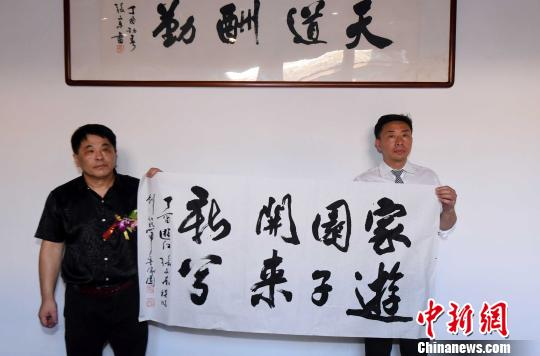 天道酬勤
丁酉初春
家園開新
遊子来写
丁酉
中新网
Chinanews.com